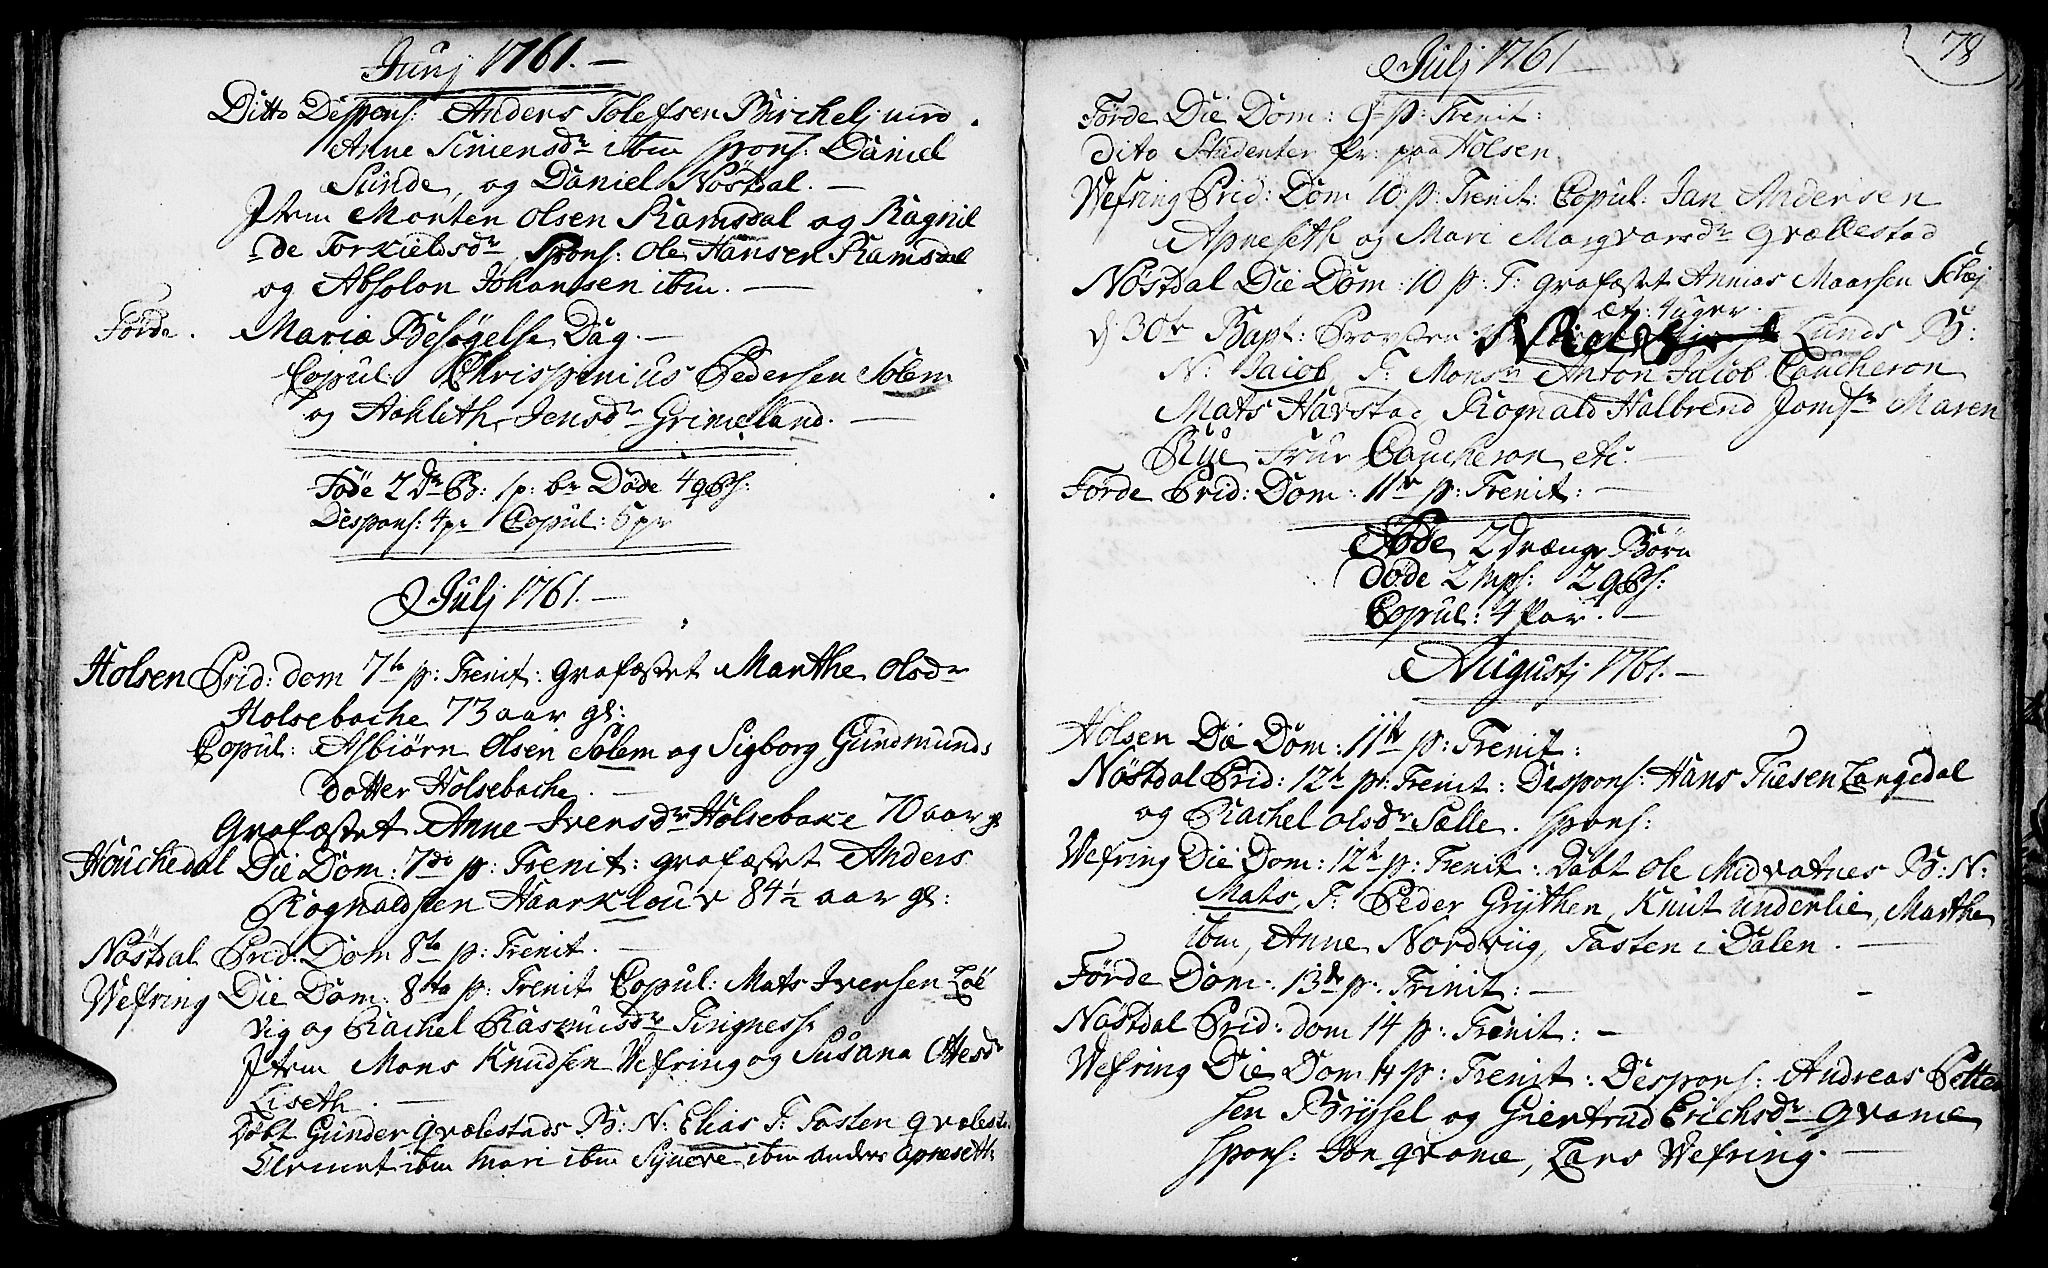 Junj 1761.
Ditto Despons: Anders Tolefsen Birchelj med
Anne Simensdr ibm spons: Daniel
Sunde, og Daniel Nøstdal.
Item Morten Olsen Ramsdal og Ragnil
de Torkieldsdr Spons: Ole Hansen Ramsdal
og Absolon Johansen ibm.
Førde. Mariæ Besøgelse Dag.
Copul: Chrispinius Pedersen Solem
og Aahleth Jensdr Grimeland.
Føde 2 dr B: 1 p: br Døde 4 qPs:
Despons: 4 pr Copul: 6 pr
Julj 1761.
Holsen Prid: dom 7de p: Trenit: grafæstet Marthe Olsdr
Holsebache 73 aar gl:
Copul: Asbiørn Olsen Solem og Sigborg Gundmunds
dotter Holsebache.
Grafæstet Anne Iversdr Holsebake 70 aar gl
Houchedal Die Dom: 7de p: Trenit: grafæstet Anders
Rognaldsen Haarklour 84½ aar gl:
Nøstdal Prid: Dom 8te p: Trenit.
Wefring Die Dom: 8de p: Trenit Copul: Mats Iversen Løe
vig og Rachel Rasmusdr Tingnesse
Item Mons Knudsen Wefring og Susana Olesdr
Liseth.
Døbt Gunder Qvælestads B: N: Elias F: Tosten qvælest
Clement ibm Mari ibm Syneve ibm Anders Apneseth
78
Julj 1761
Førde Die Dom: 9 p: Trenit:
Dito Studenter pr: paa Holsen.
Wefring Prid: Dom 10 p: Trenit: Copul: Jan Andersen
Apneseth og Mari Marqvarsdr Qvællestad
Nøstdal Die Dom: 10 p: T: grafæstet Annias Maarsen Schej
æt: 4 uger
d: 30te Bapt: Provsten Niels Lunds B:
N: Jacob F: Monsr Anton Jacob Coucheron
Mats Havstad Rognald Halbrend Jomfr Maren
Rye Frue Coucheron etc.
Førde Prid: Dom: 11te p: Trenit:
Føde 2 drænge Børn
Døde 2 Mps: 2 qPs:
Copul: 4 Par.
Augustj 1761.
Holsen Die Dom: 11te p: Trenit:
Nøstdal Prid: 12te p: Trenit: Despons: Hans Tuesen Langedal
og Rachel Olsdr Sælle. spons:
Wefring Die Dom: 12te p: Trenit: Døbt Ole Midvatnes B: N:
Mats, F: Peder Grythen, Knut underlie, Marthe
ibm, Anne Nordvug, Tosten i Dalen.
Førde Dom: 13de p: Trinit:
Nøstdal Prid: dom 14 p: Trenit:
Wefring Die Dom 14 p: Trenit: Despons: Andreas Petter
sen Bryssel og Giertrud Erichsdr Qvame
spons: Jon qvame, Lars Wefring.